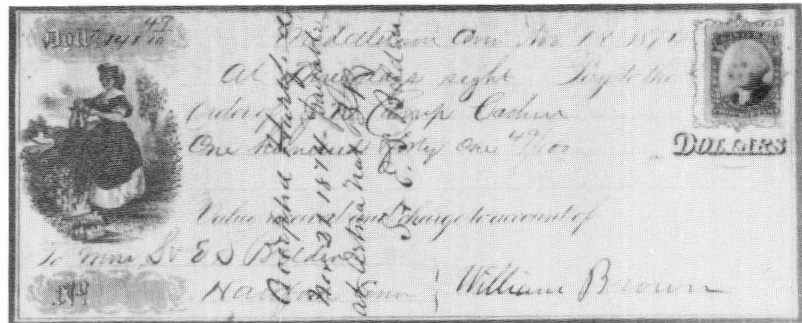 Doll
Conn Nov 18 187
At Three days sight Pay to the
Order of Jno Camp Cashier
One hundred Forty One 49/100
DOLLARS
Value received and charge to account of
To S & E S Belden
Hartford Conn
William Brown
Accepted
Nov 21 1874 Payable
at Aetna Nat B'k
S & E S Belden